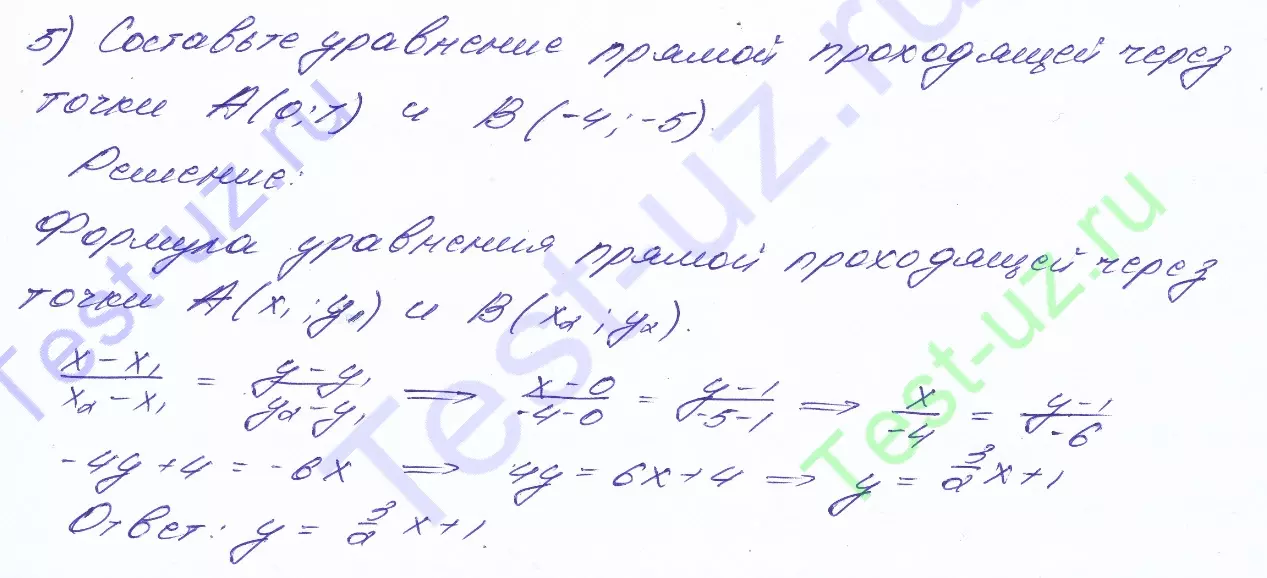 5) Составьте уравнение прямой проходящей через
точки A(0;1) и B(-4;-5).
Решение:
Формула уравнения прямой проходящей через
точки A(x₁;y₁) и B(x₂;y₂).
(x-x₁)/(x₂-x₁) = (y-y₁)/(y₂-y₁) ⟹ (x-0)/(-4-0) = (y-1)/(-5-1) ⟹ x/-4 = (y-1)/-6
-4y+4 = -6x ⟹ 4y = 6x+4 ⟹ y = 3/2 x+1
Ответ: y = 3/2 x+1.
Test-uz.ru
Test-uz.ru
Test-uz.ru